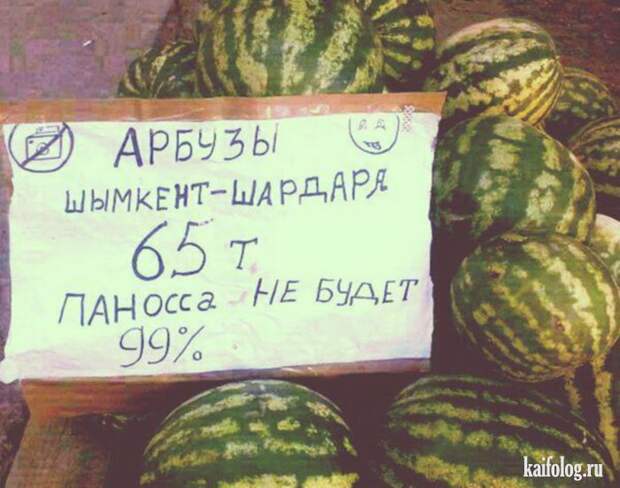 АРБУЗЫ
ШЫМКЕНТ-ШАРДАРЯ
65 т
ПАНОССа НЕ БУДЕТ
99%
kaifolog.ru